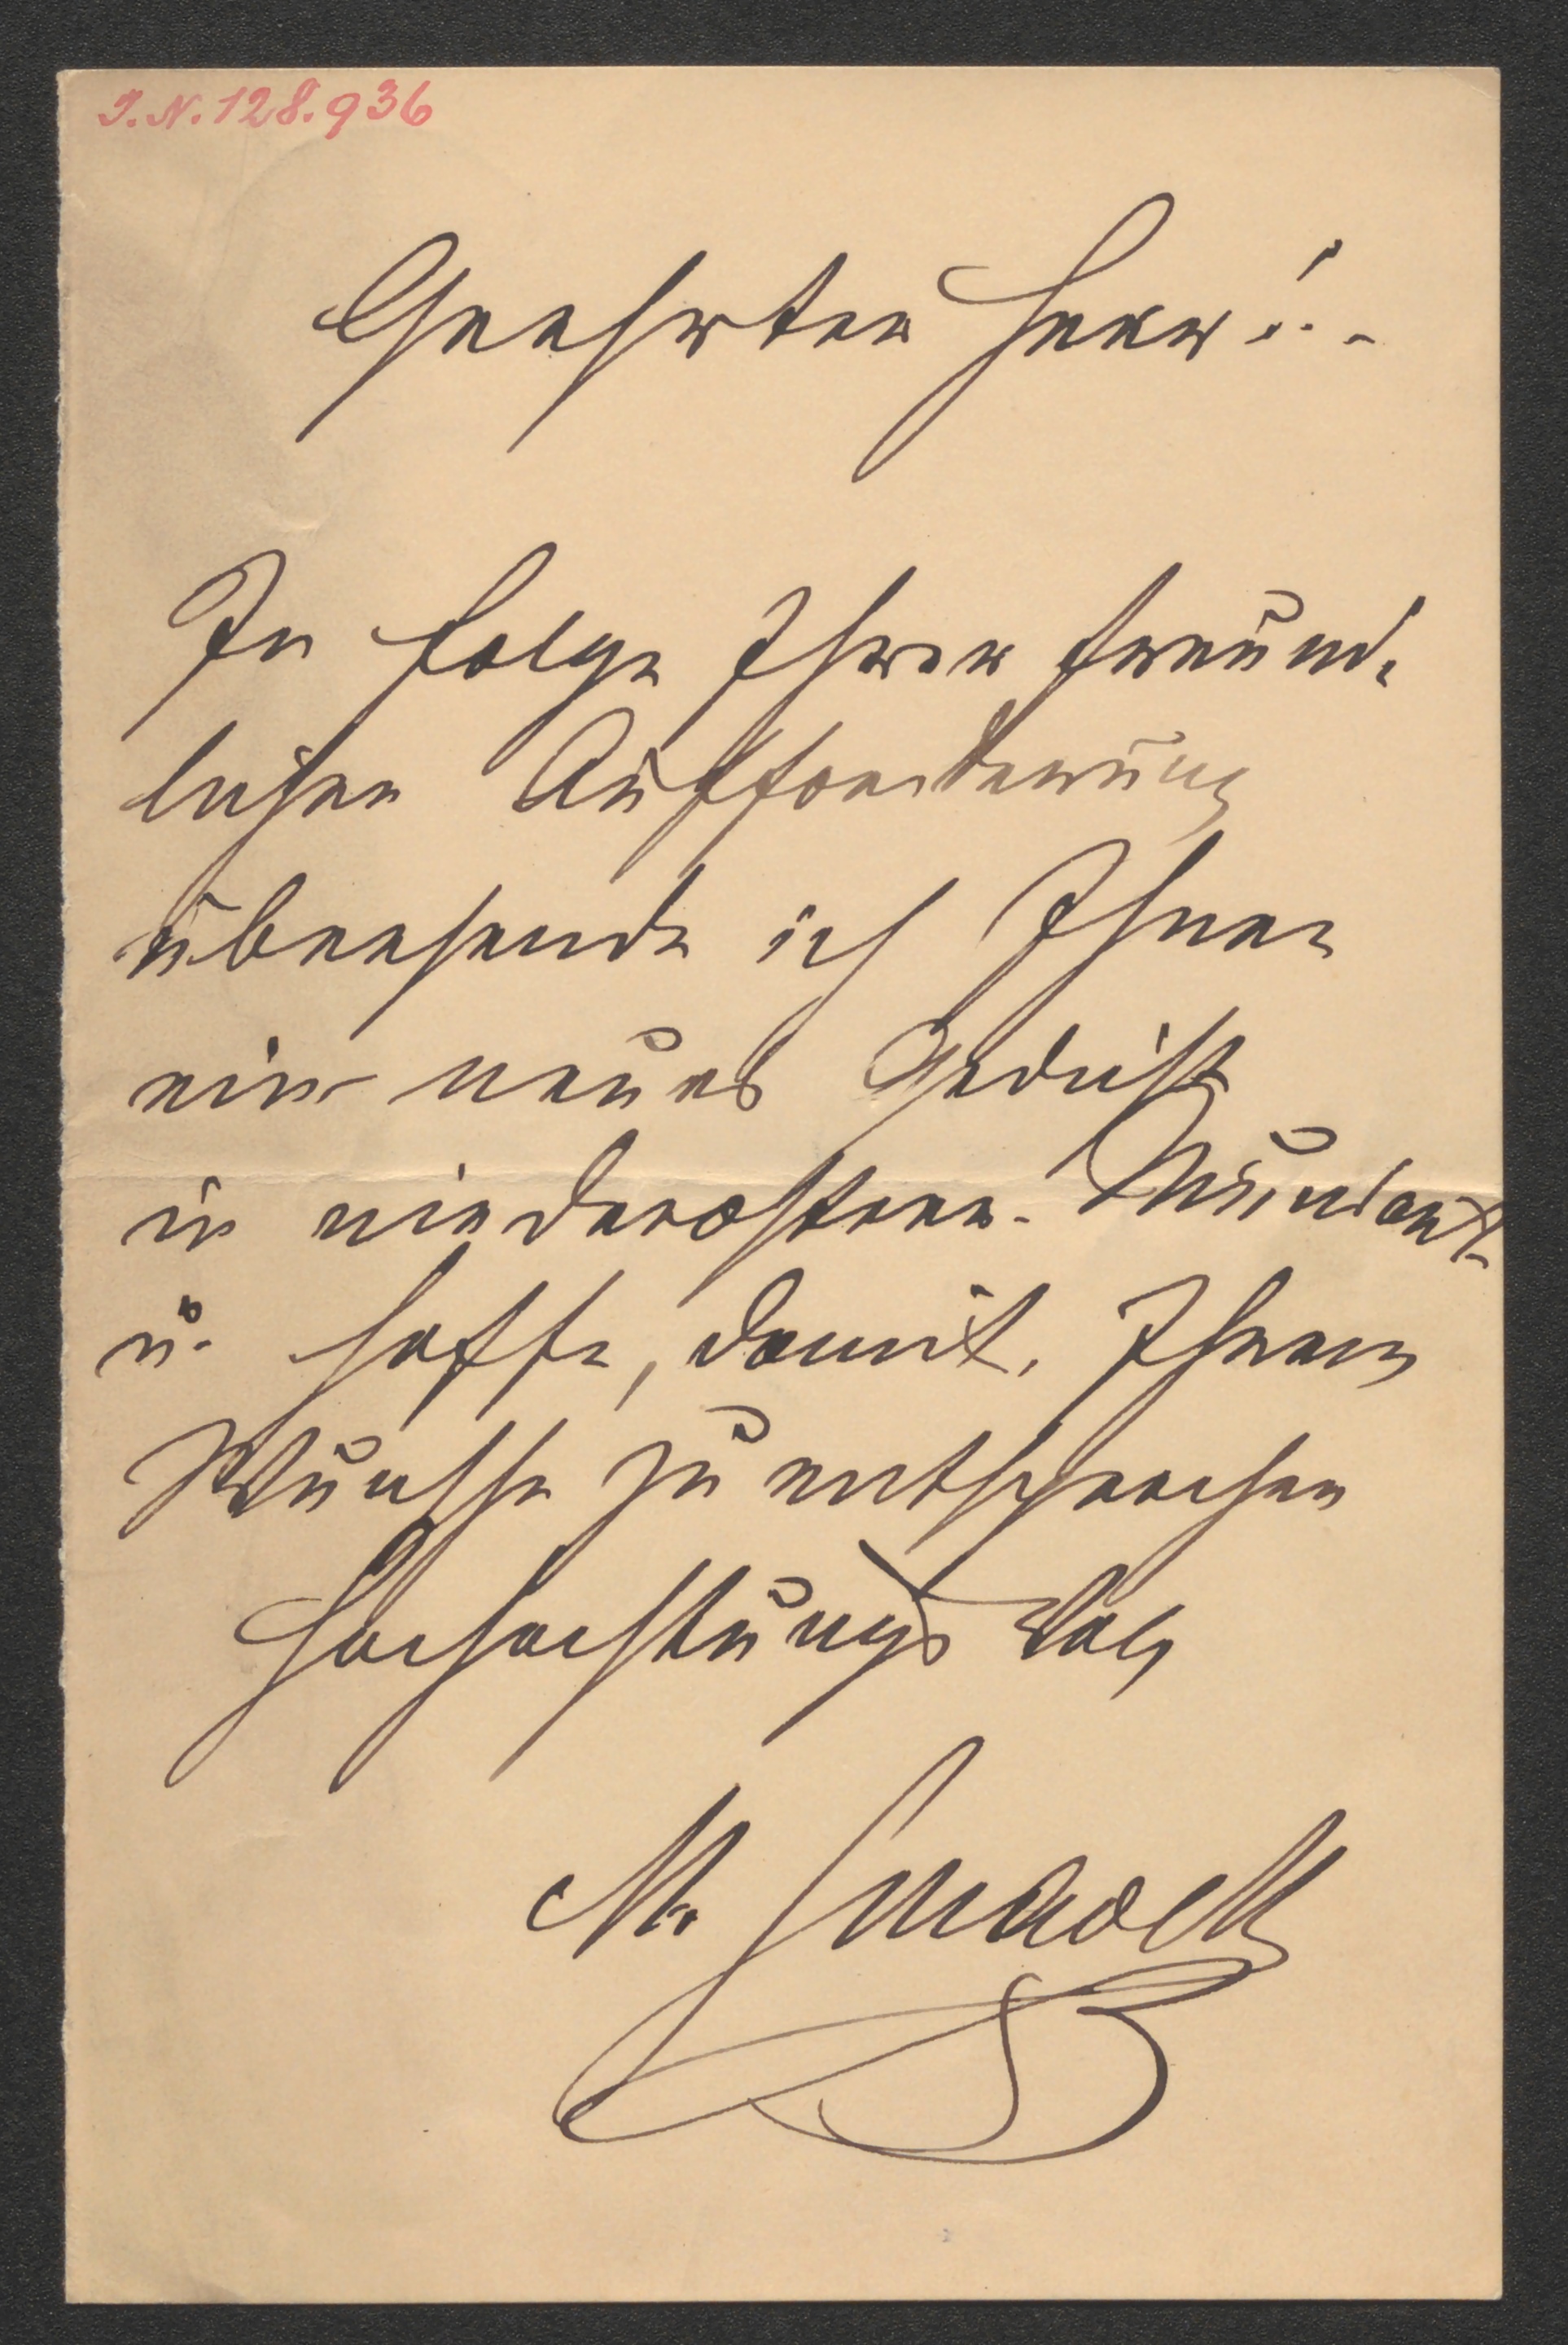 I.N. 128.936
Geehrter Herr!. -
In Folge Ihrer freund-
lichen Aufforderung
übersende ich Ihnen
ein neues Gedicht
in niederösterr. Mundart
u. hoffe, damit, Ihrem
Wunsche zu entsprechen
Hochachtungsvoll
M.